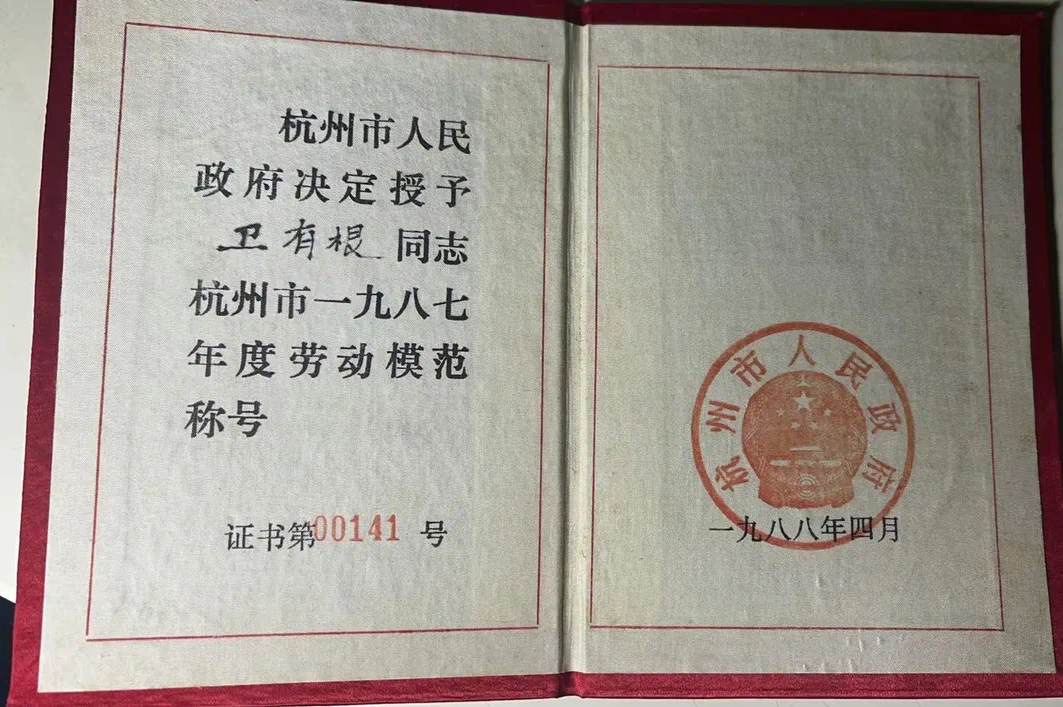 杭州市人民
政府决定授予
卫有根同志
杭州市一九八七
年度劳动模范
称号
证书第00141号
杭州市人民政府
一九八八年四月